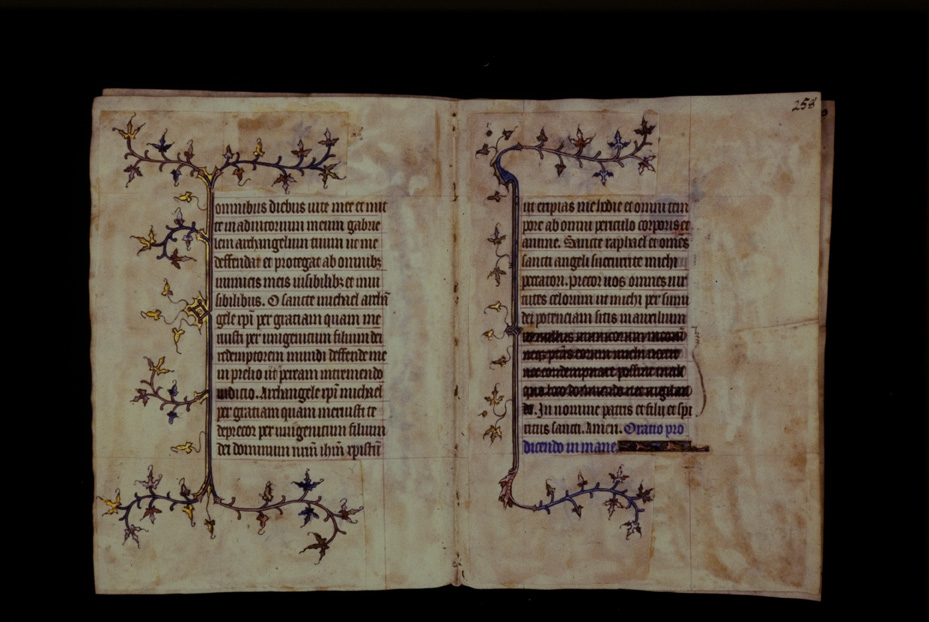 omnibus diebus uite mee et mit
te in adiutorium meum gabrie
lem archangelum tuum ut me
deffendat et protegat ab omnibz
inimicis meis uisibilibz et inui
sibilibus. O sancte michael archā
gele xpi per gratiam quam me
ruisti per unigenitum filium dei
redemptorem mundi deffende me
in prelio ut peream in tremendo
iudicio. Archangele xpi michael
per gratiam quam meruisti te
deprecor per unigenitum filium
dei dominum nrm ihm xpistū
258
ut eripias me hodie et omni tem
pore ab omni periculo corporis et
anime. Sancte raphael et omēs
sancti angeli succurrite michi
peccatori. Precor uos omnes uir
tutes celorum ut michi per sum
dei potenciam sitis in auxilium
ut nullus inimicorum
michi
nec condempnare possint
dormiendo nec uigilan
do. In nomine patris et filii et spi
ritus sancti. Amen. Oratio pro
dicendo in mane